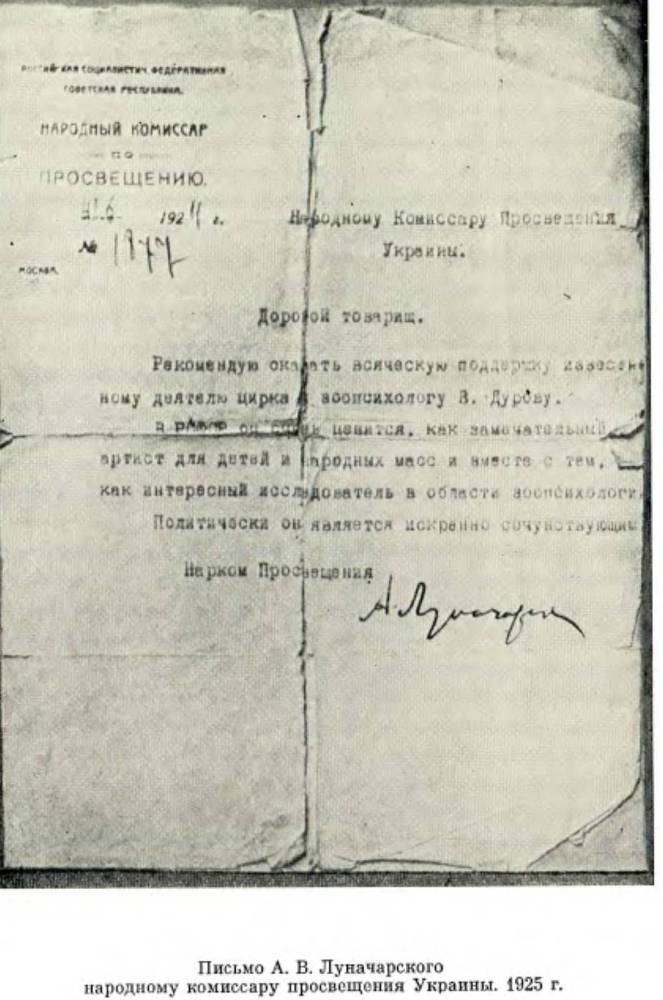 РОССИЙСКАЯ СОЦИАЛИСТИЧ. ФЕДЕРАТИВНАЯ
СОВЕТСКАЯ РЕСПУБЛИКА.
НАРОДНЫЙ КОМИССАР
ПО
ПРОСВЕЩЕНИЮ.
192 г.
№ 1977
МОСКВА.
Народному Комиссару Просвещения
Украины.
Дорогой товарищ.
Рекомендую оказать всяческую поддержку известн
ному деятелю цирка и зоопсихологу В. Дурову.
В он очень ценится, как замечательный
артист для детей и народных масс и вместе с тем,
как интересный исследователь в области зоопсихологи
Политически он является искренно сочувствующим
Нарком Просвещения
А. Луначарский
Письмо А. В. Луначарского
народному комиссару просвещения Украины. 1925 г.